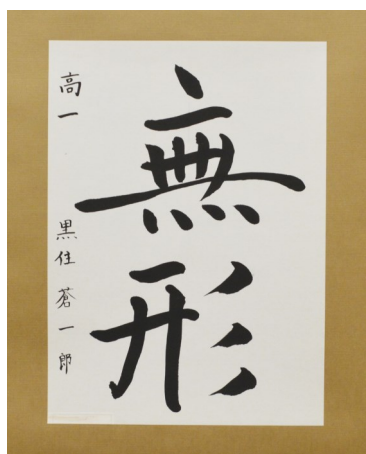 無形
高一 黒住蒼一郎